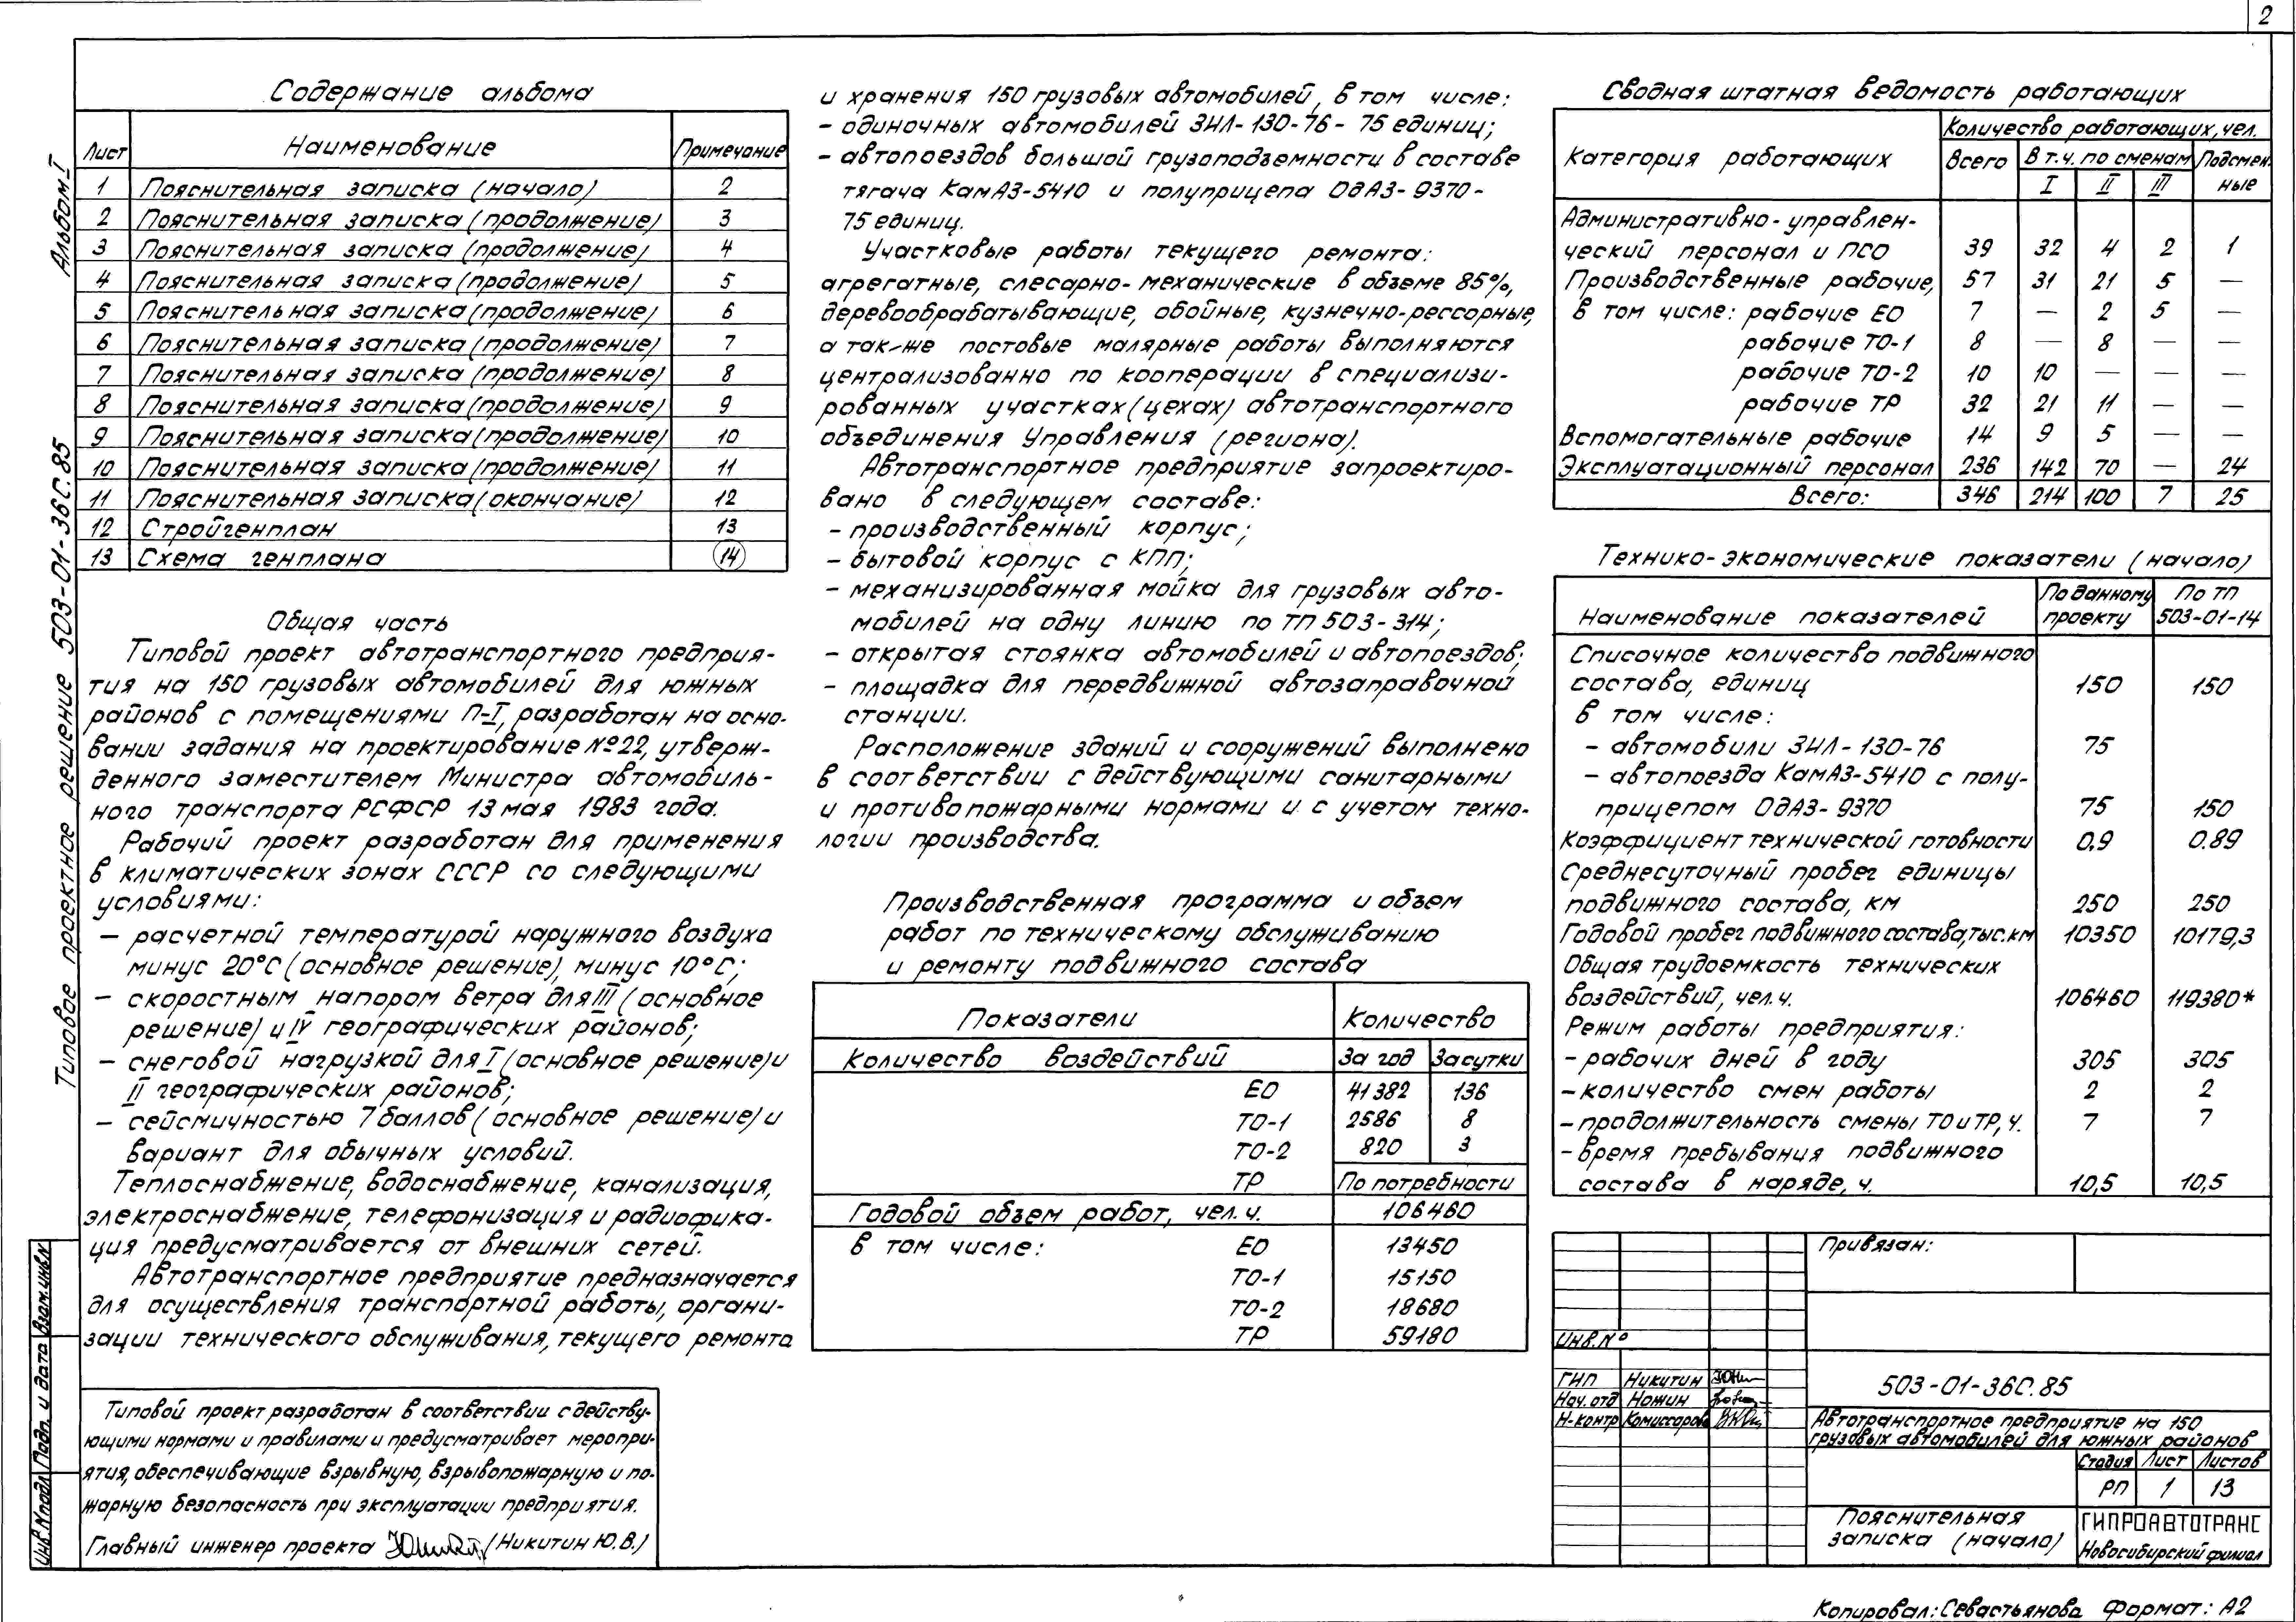 2
Альбом I
Типовое проектное решение 503-01-36С.85
Взам.инв.N
Подп. и дата
Инв.Nподл
Содержание альбома
Лист Наименование Примечание
1 Пояснительная записка (начало) 2
2 Пояснительная записка (продолжение) 3
3 Пояснительная записка (продолжение) 4
4 Пояснительная записка (продолжение) 5
5 Пояснительная записка (продолжение) 6
6 Пояснительная записка (продолжение) 7
7 Пояснительная записка (продолжение) 8
8 Пояснительная записка (продолжение) 9
9 Пояснительная записка (продолжение) 10
10 Пояснительная записка (продолжение) 11
11 Пояснительная записка (окончание) 12
12 Стройгенплан 13
13 Схема генплана 14
Общая часть
Типовой проект автотранспортного предприя-
тия на 150 грузовых автомобилей для южных
районов с помещениями П-I, разработан на осно-
вании задания на проектирование №22, утверж-
денного заместителем Министра автомобиль-
ного транспорта РСФСР 13 мая 1983 года.
Рабочий проект разработан для применения
в климатических зонах СССР со следующими
условиями:
— расчетной температурой наружного воздуха
минус 20°С (основное решение), минус 10°С;
— скоростным напором ветра для III (основное
решение) и IV географических районов;
— снеговой нагрузкой для I (основное решение) и
II географических районов;
— сейсмичностью 7 баллов (основное решение) и
вариант для обычных условий.
Теплоснабжение, водоснабжение, канализация,
электроснабжение, телефонизация и радиофика-
ция предусматривается от внешних сетей.
Автотранспортное предприятие предназначается
для осуществления транспортной работы, органи-
зации технического обслуживания, текущего ремонта
Типовой проект разработан в соответствии с действу-
ющими нормами и правилами и предусматривает меропри-
ятия, обеспечивающие взрывную, взрывопожарную и по-
жарную безопасность при эксплуатации предприятия.
Главный инженер проекта (Никитин Ю.В.)
и хранения 150 грузовых автомобилей, в том числе:
— одиночных автомобилей ЗИЛ-130-76 - 75 единиц;
— автопоездов большой грузоподъемности в составе
тягача КамАЗ-5410 и полуприцепа ОдАЗ-9370-
75 единиц.
Участковые работы текущего ремонта:
агрегатные, слесарно-механические в объеме 85%,
деревообрабатывающие, обойные, кузнечно-рессорные,
а так-же постовые малярные работы выполняются
централизованно по кооперации в специализи-
рованных участках (цехах) автотранспортного
объединения Управления (региона).
Автотранспортное предприятие запроектиро-
вано в следующем составе:
— производственный корпус;
— бытовой корпус с КПП;
— механизированная мойка для грузовых авто-
мобилей на одну линию по ТП 503-314;
— открытая стоянка автомобилей и автопоездов;
— площадка для передвижной автозаправочной
станции.
Расположение зданий и сооружений выполнено
в соответствии с действующими санитарными
и противопожарными нормами и с учетом техно-
логии производства.
Производственная программа и объем
работ по техническому обслуживанию
и ремонту подвижного состава
Показатели Количество
Количество воздействий За год За сутки
ЕО 41382 136
ТО-1 2586 8
ТО-2 820 3
ТР По потребности
Годовой объем работ, чел.ч. 106460
в том числе: ЕО 13450
ТО-1 15150
ТО-2 18680
ТР 59180
Сводная штатная ведомость работающих
Категория работающих Количество работающих, чел.
Всего В т.ч. по сменам Подсмен-
I II III ные
Административно-управлен-
ческий персонал и ПСО 39 32 4 2 1
Производственные рабочие, 57 31 21 5 —
в том числе: рабочие ЕО 7 — 2 5 —
рабочие ТО-1 8 — 8 — —
рабочие ТО-2 10 10 — — —
рабочие ТР 32 21 11 — —
Вспомогательные рабочие 14 9 5 — —
Эксплуатационный персонал 236 142 70 — 24
Всего: 346 214 100 7 25
Технико-экономические показатели (начало)
Наименование показателей По данному проекту По ТП 503-01-14
Списочное количество подвижного
состава, единиц 150 150
в том числе:
— автомобили ЗИЛ-130-76 75
— автопоезда КамАЗ-5410 с полу-
прицепом ОдАЗ-9370 75 150
Коэффициент технической готовности 0,9 0.89
Среднесуточный пробег единицы
подвижного состава, км 250 250
Годовой пробег подвижного состава, тыс.км 10350 10179,3
Общая трудоемкость технических
воздействий, чел.ч. 106460 119380*
Режим работы предприятия:
— рабочих дней в году 305 305
— количество смен работы 2 2
— продолжительность смены ТО и ТР, ч. 7 7
— время пребывания подвижного
состава в наряде, ч. 10,5 10,5
Привязан:
Инв.№
ГИП Никитин
Нач.отд Ножин
Н-контр Комиссарова
503-01-36С.85
Автотранспортное предприятие на 150
грузовых автомобилей для южных районов
Стадия Лист Листов
РП 1 13
Пояснительная
записка (начало)
ГИПРОАВТОТРАНС
Новосибирский филиал
Копировал: Севастьянова Формат: А2